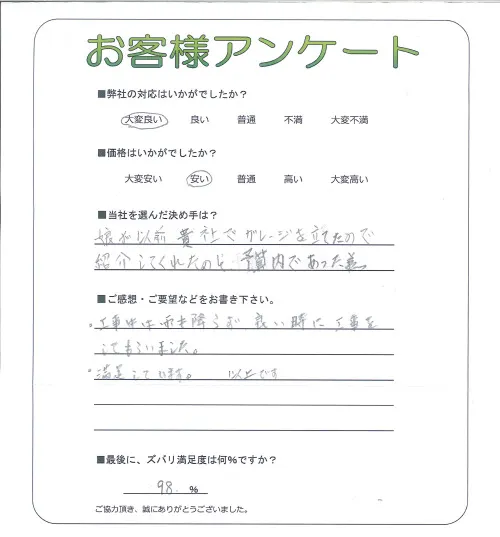 お客様アンケート
■弊社の対応はいかがでしたか？
大変良い 良い 普通 不満 大変不満
■価格はいかがでしたか？
大変安い 安い 普通 高い 大変高い
■当社を選んだ決め手は？
娘が以前貴社でガレージを立てたので
紹介してくれたのと、予算内であった為。
■ご感想・ご要望などをお書き下さい。
。工事中は雨も降らず、良い時に工事を
してもらいました。
。満足しています。 以上です
■最後に、ズバリ満足度は何％ですか？
98. %
ご協力頂き、誠にありがとうございました。